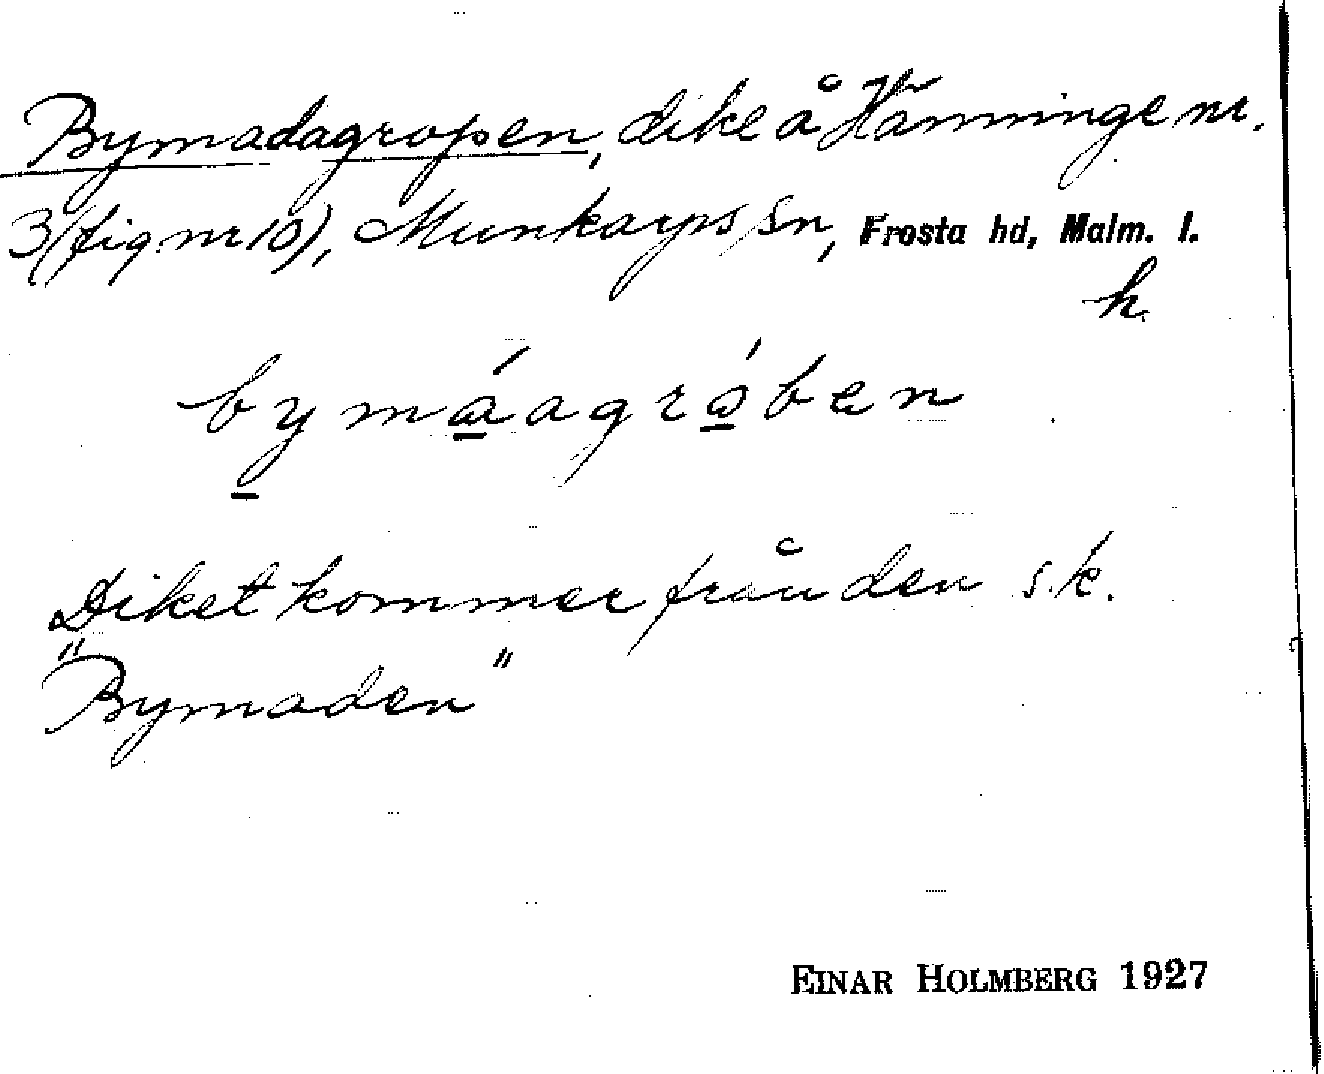 Bymadagropen, dike å Hänninge nr.
3 (fig nr 10), Munkarps sn, Frosta hd, Malm. l.
h.
bymáagróben
Diket kommer från den s.k.
"Bymaden"
EINAR HOLMBERG 1927